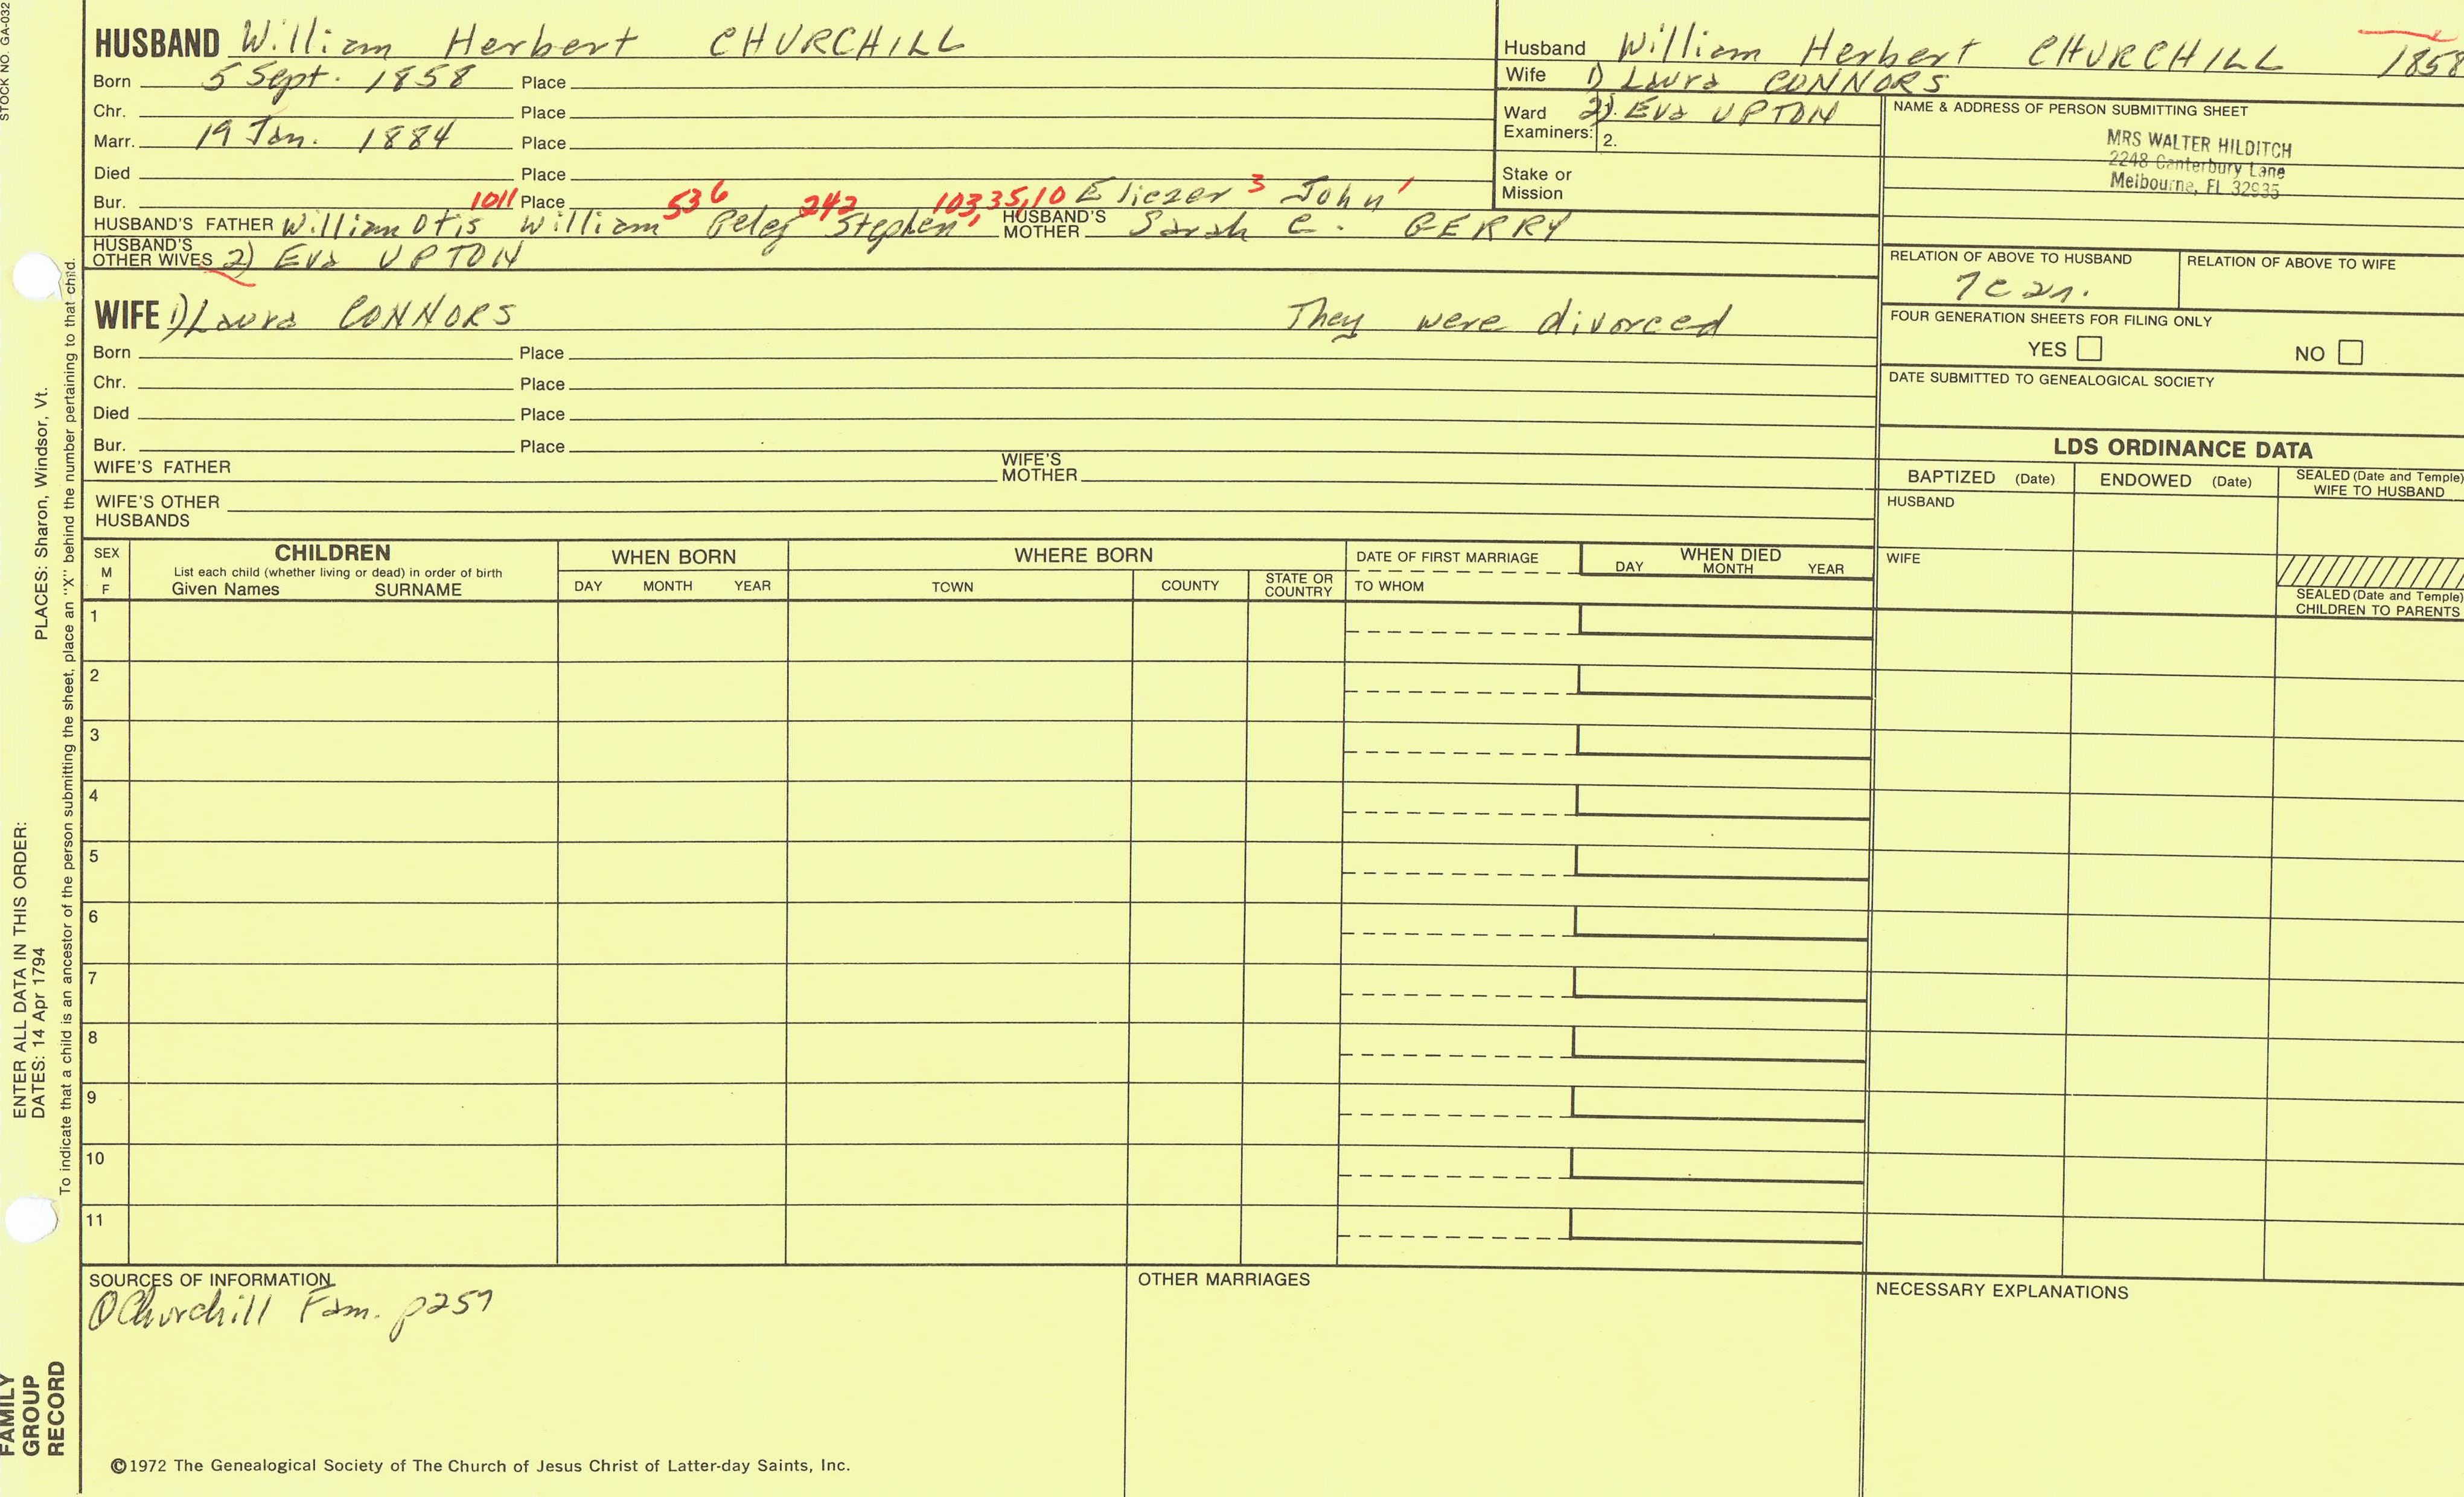 STOCK NO. GA-032
HUSBAND William Herbert CHURCHILL
Born 5 Sept. 1858 Place
Chr. Place
Marr. 19 Jan. 1884 Place
Died Place
Bur. 1011 Place 536 242 103,35,10 Eliezer 3 John 1
HUSBAND'S FATHER William Otis William Peleg Stephen HUSBAND'S MOTHER Sarah E. GERRY
HUSBAND'S OTHER WIVES 2) Eva UPTON
Husband William Herbert CHURCHILL 1858
Wife 1) Laura CONNORS
Ward 2). Eva UPTON
Examiners: 2.
Stake or
Mission
NAME & ADDRESS OF PERSON SUBMITTING SHEET
MRS WALTER HILDITCH
2248 Canterbury Lane
Melbourne, FL 32935
RELATION OF ABOVE TO HUSBAND RELATION OF ABOVE TO WIFE
FOUR GENERATION SHEETS FOR FILING ONLY
YES NO
DATE SUBMITTED TO GENEALOGICAL SOCIETY
WIFE 1) Laura CONNORS They were divorced
Born Place
Chr. Place
Died Place
Bur. Place
WIFE'S FATHER WIFE'S MOTHER
WIFE'S OTHER
HUSBANDS
LDS ORDINANCE DATA
BAPTIZED (Date) ENDOWED (Date) SEALED (Date and Temple)
WIFE TO HUSBAND
HUSBAND
WIFE
SEALED (Date and Temple)
CHILDREN TO PARENTS
SEX
M
F
CHILDREN
List each child (whether living or dead) in order of birth
Given Names SURNAME
WHEN BORN
DAY MONTH YEAR
WHERE BORN
TOWN COUNTY STATE OR COUNTRY
DATE OF FIRST MARRIAGE
TO WHOM
WHEN DIED
DAY MONTH YEAR
1
2
3
4
5
6
7
8
9
10
11
SOURCES OF INFORMATION
① Churchill Fam. p257
OTHER MARRIAGES
NECESSARY EXPLANATIONS
©1972 The Genealogical Society of The Church of Jesus Christ of Latter-day Saints, Inc.
PLACES: Sharon, Windsor, Vt.
To indicate that a child is an ancestor of the person submitting the sheet, place an "X" behind the number pertaining to that child.
ENTER ALL DATA IN THIS ORDER:
DATES: 14 Apr 1794
FAMILY
GROUP
RECORD